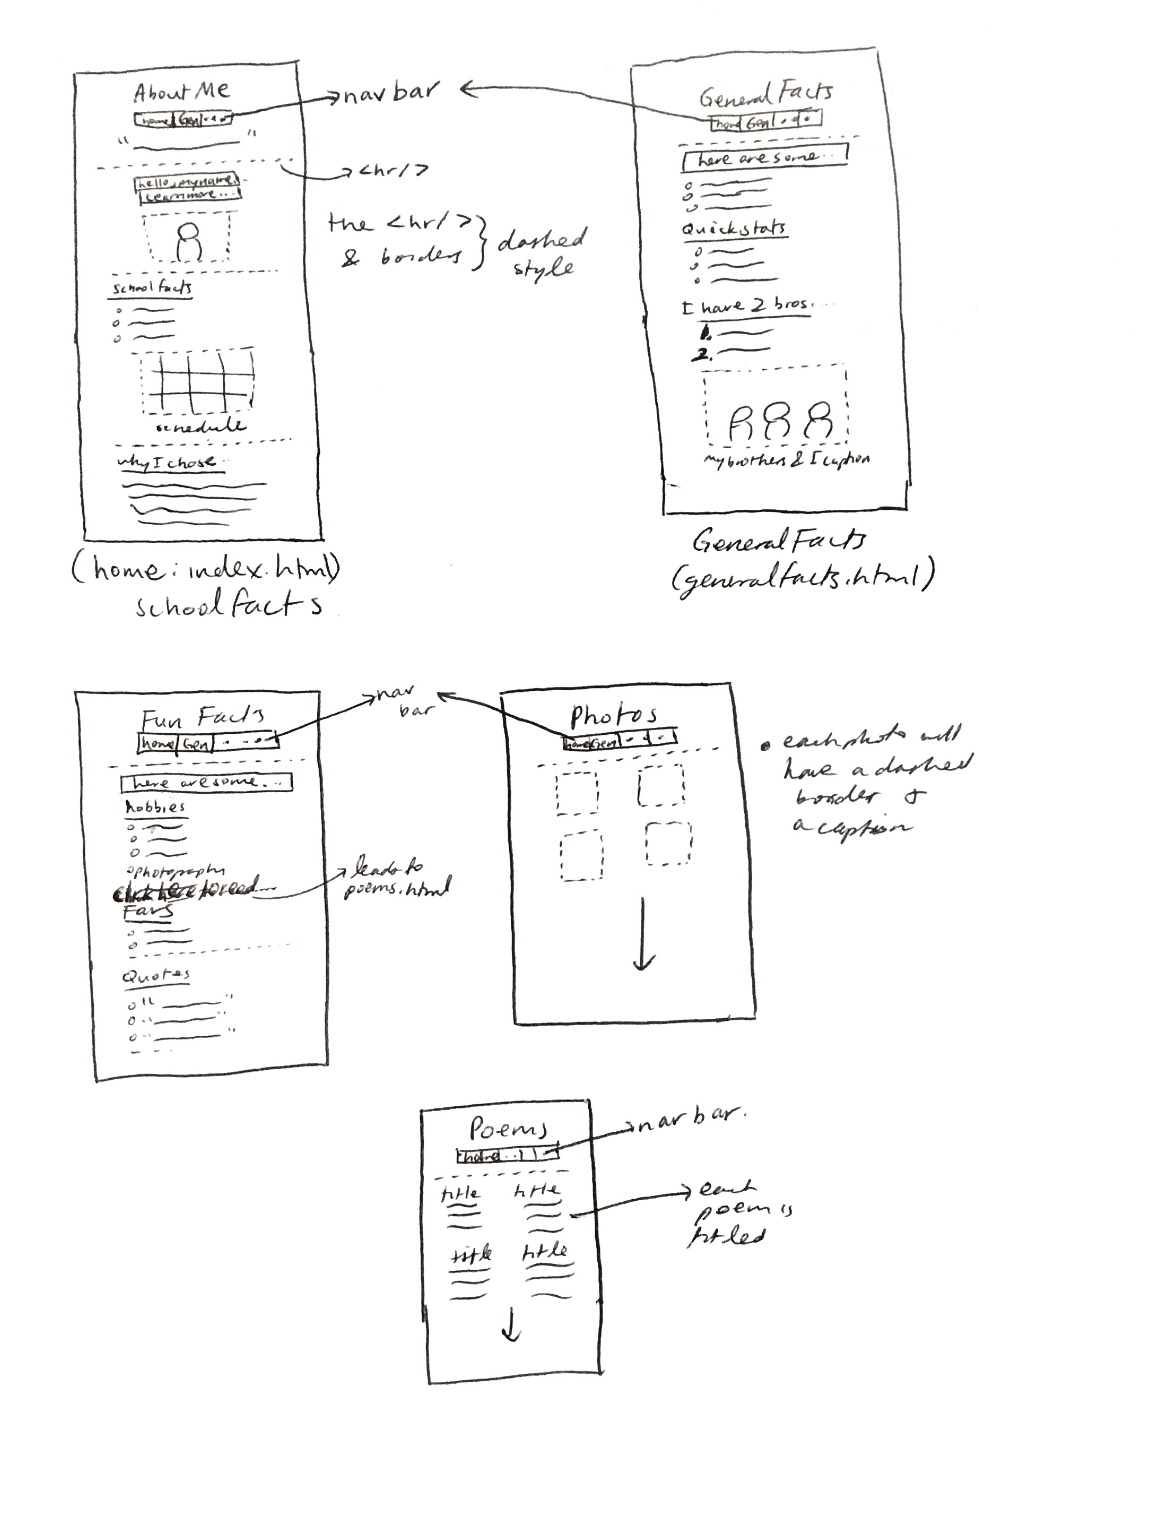 About Me
home Gen ...
"      "
hello, my name.
Learn more...
School facts
schedule
why I chose..
(home: index.html)
school facts
nav bar
<hr/>
the <hr/>
& borders } dashed
style
General Facts
home Gen ...
here are some...
Quick stats
I have 2 bros....
1.
2.
my brothers & I caption
General Facts
(generalfacts.html)
Fun Facts
home Gen ....
here are some...
hobbies
photography
click here to read...
Favs
Quotes
"      "
"      "
"      "
nav
bar
leads to
poems.html
Photos
home Gen ...
• each photo will
have a dashed
border &
a caption
Poems
home ...
title title
title title
nav bar.
each
poem is
titled